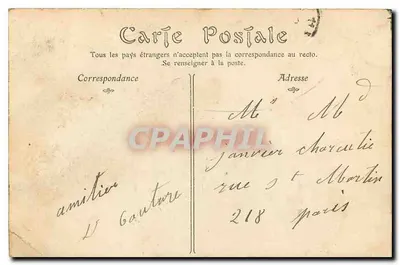 Carte Postale
Tous les pays étrangers n'acceptent pas la correspondance au recto.
Se renseigner à la poste.
Correspondance
Adresse
CPAPHIL
Mr Md
Janvier charcutie
rue St Martin
218 paris
amitier
Couture